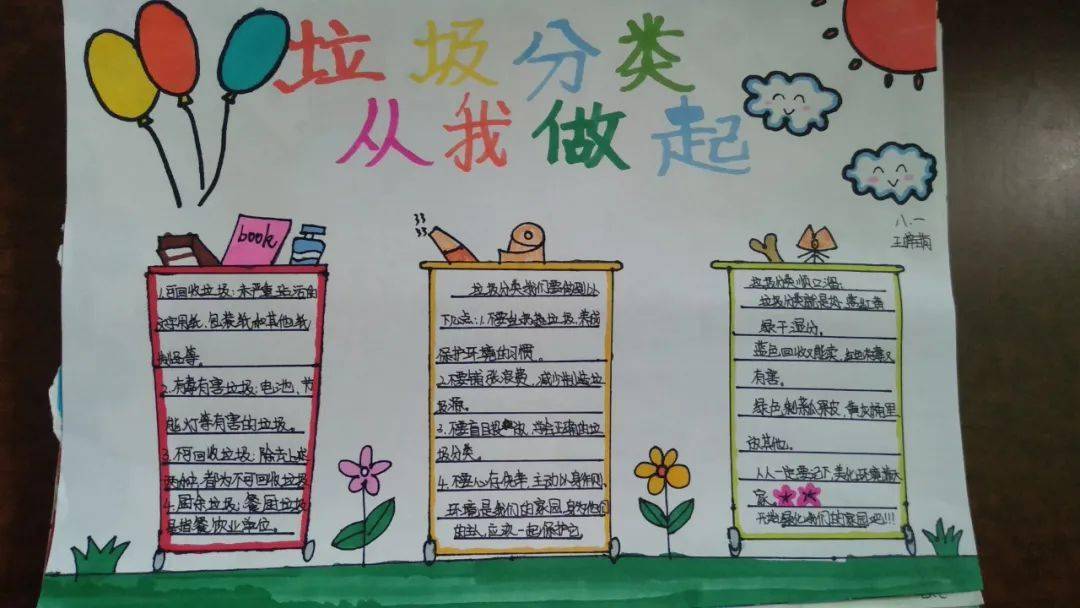 垃圾分类
从我做起
八.一
book
1.可回收垃圾:未严重
文字用纸、包装纸和其他纸
制品等。
2.有毒有害垃圾:电池、节
能灯等有害的垃圾。
3.不可回收垃圾:除去
都为不可回收垃圾
4.厨余垃圾:餐厨垃圾
是指餐饮业单位。
垃圾分类我们要做到以
下几点:1.不要 垃圾,养成
保护环境的习惯。
2.不要铺张浪费,减少制造垃
圾源。
3.不要盲目投 正确的垃
圾分类。
4.不要心存侥幸,主动以身作则,
环境是我们的家园,身为他们
一起保护它
垃圾分类顺口溜:
垃圾分类
绿干湿分。
蓝色回收又能卖,红色有毒又
有害。
绿色 果皮,黄灰桶里
其他。
人人一定要记下,美化环境靠大
家
我们的家园吧!!!